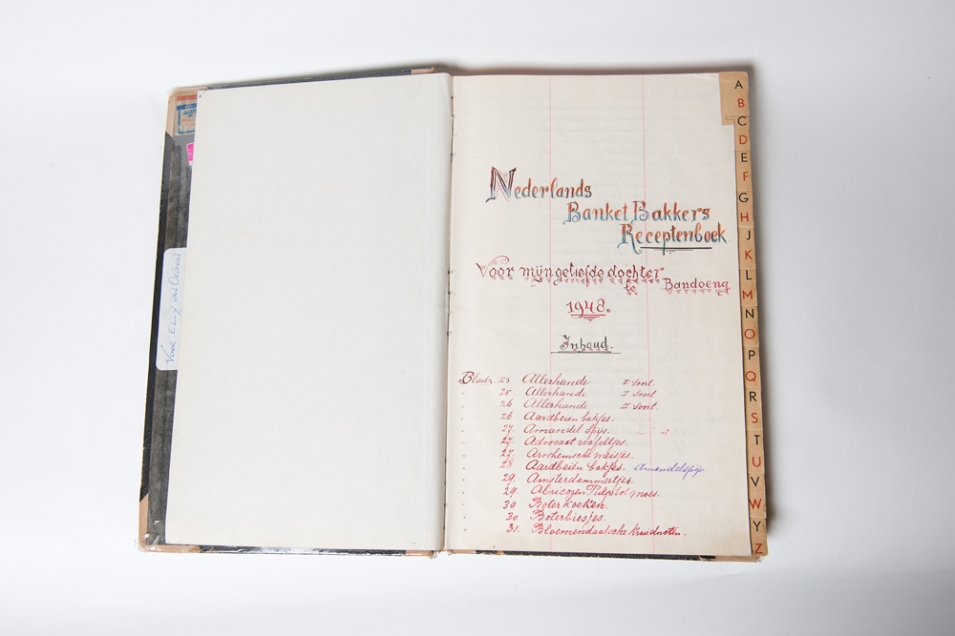 Voor Elly van
Nederlands
Banket Bakkers
Receptenboek
Voor mijn geliefde dochter
te Bandoeng
1948.
Inhoud.
Bladz. 25 Allerhande I Soort
" 25 Allerhande. I Soort
" 26 Allerhande II Soort.
" 26 Aardbeien bakjes.
" 27. Amandel spijs.
" 27. Advocaat wafeltjes.
" 27. Arnhemsche meisjes.
" 28 Aardbeien bakjes. Amandelspijs.
" 29. Amsterdammertjes.
" 29. Abricozen moes.
" 30 Boterkoeken.
" 30 Boterbiesjes.
" 31. Bloemendaalsche Kruidnoten.
A
B
C
D
E
F
G
H
J
K
L
M
N
O
P
Q
R
S
T
U
V
W
Y
Z